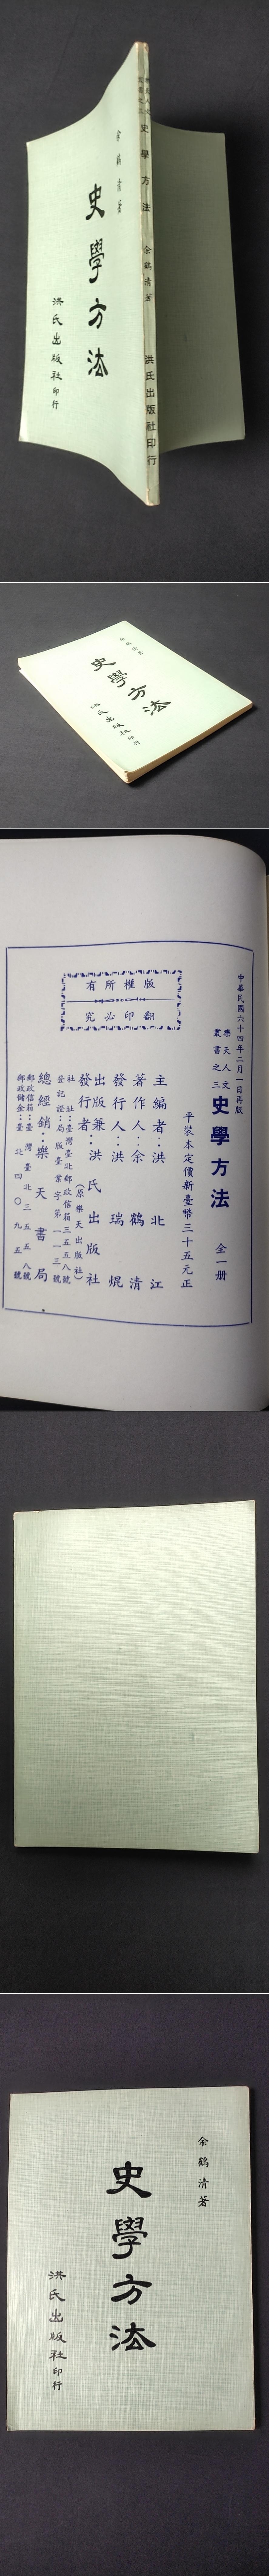 余鶴清著
史學方法
洪氏出版社印行
樂天人文
叢書之三
史學方法
余鶴清著
洪氏出版社印行
史學方法
洪氏出版社印行
中華民國六十四年二月一日再版
樂天人文
叢書之三
史學方法
全一册
平裝本定價新臺幣三十五元正
主編者：洪北江
著作人：余鶴清
發行人：洪瑞焜
出版兼
發行者：洪氏出版社
（原樂天出版社）
社址：臺灣臺北郵政信箱三五五八號
登記證：局版臺業字第一一三號
總經銷：樂天書局
郵政信箱：臺灣臺北三五五八號
郵政儲金：臺北四〇九五號
版權所有
翻印必究
余鶴清著
史學方法
洪氏出版社印行